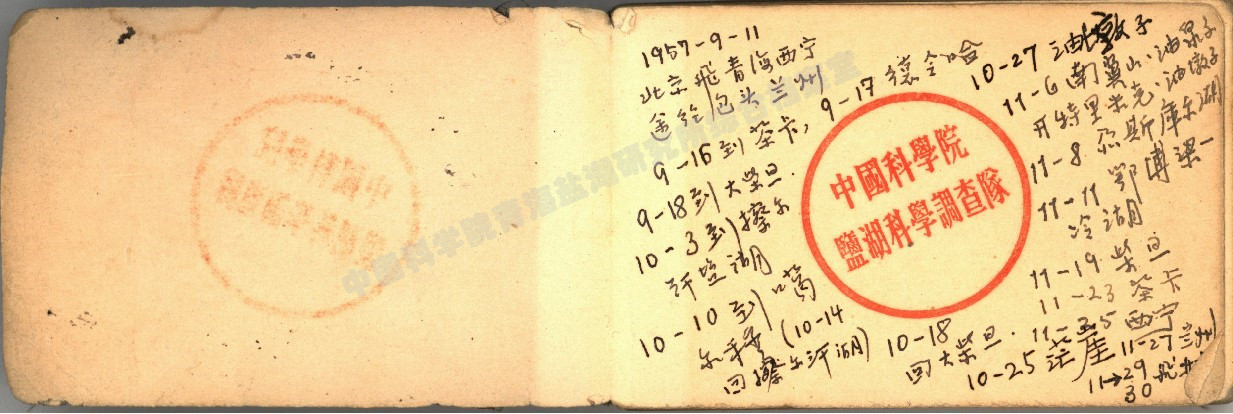 1957-9-11
北京飛青海西宁
途经包头兰州
9-16到茶卡, 9-17 德令哈
9-18到大柴旦.
10-3到察尔
汗盐湖
10-10到噶
尔穆 (10-14
回察尔汗湖)
10-18
回大柴旦.
10-25 茫崖
10-27 油墩子
11-6 南翼山、油泉子
开特里米克、油墩子
11-8. 尕斯庫尔湖
11-11 鄂博梁一
冷湖
11-19 柴旦
11-23 茶卡
11-25 西宁
11-27 兰州
11-29
30 飛
中國科學院
鹽湖科學調查隊